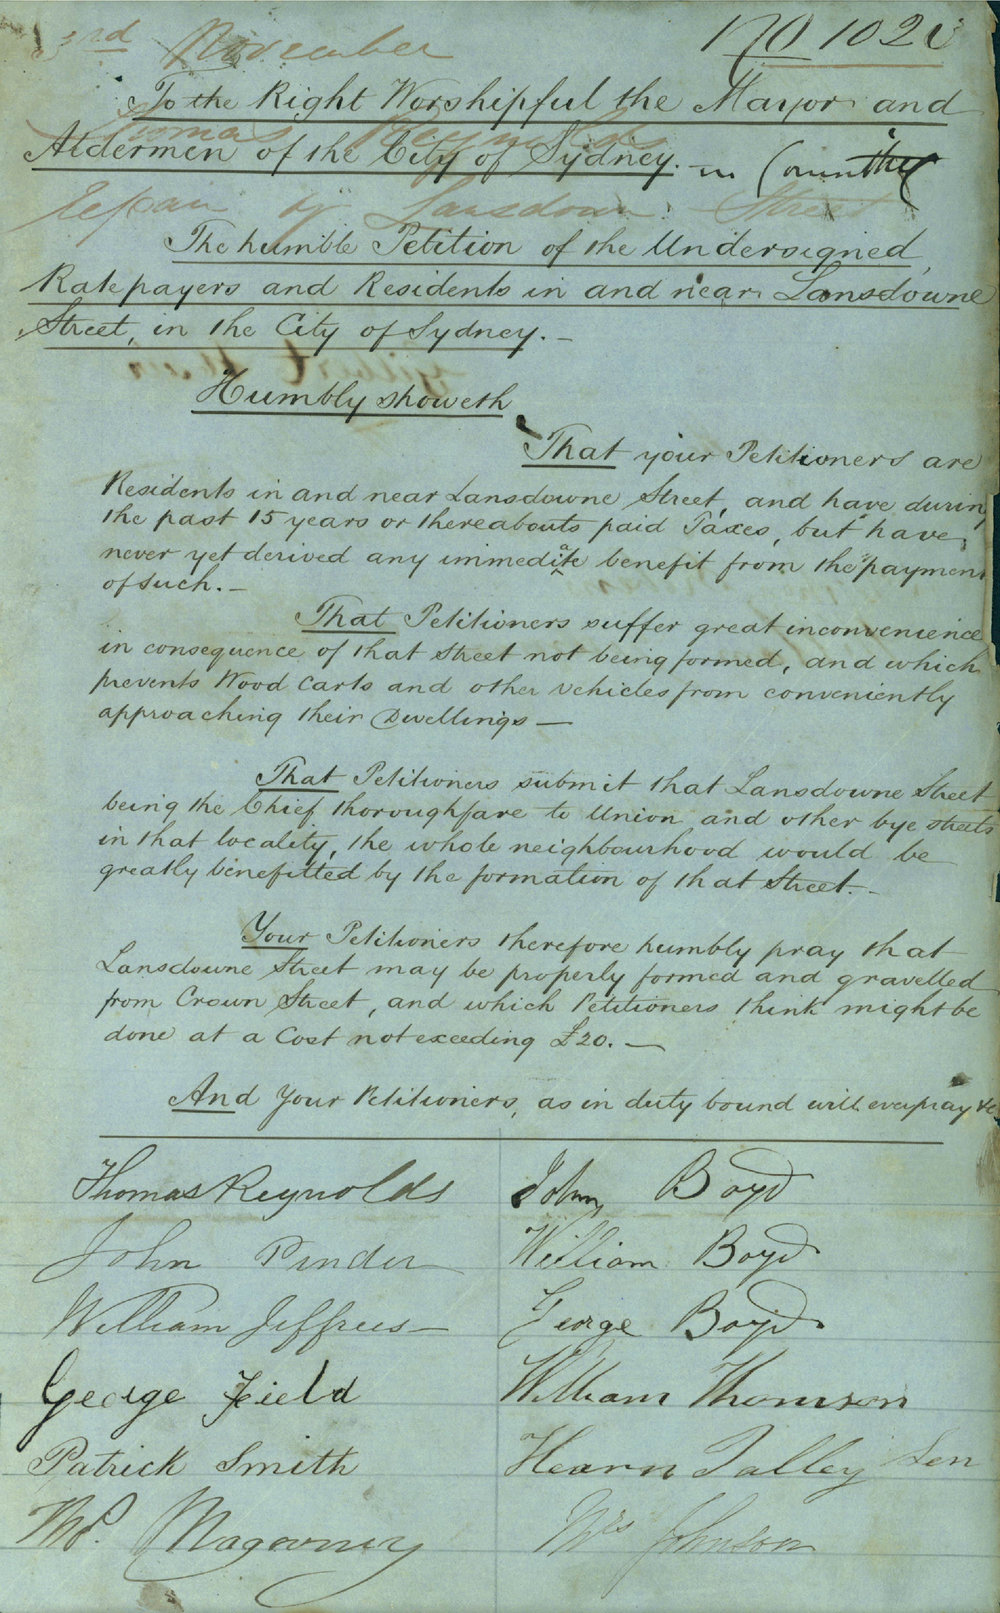 3rd November
To the Right Worshipful the Mayor and
Thomas Reynolds
Aldermen of the City of Sydney. — in Council
Repair of Lansdown Street
The humble Petition of the Undersigned,
Ratepayers and Residents in and near Lansdowne
Street, in the City of Sydney. —
Humbly showeth
That your Petitioners are
Residents in and near Lansdowne Street, and have during
the past 15 years or thereabouts paid Taxes, but have
never yet derived any immediate benefit from the payment
of such. —
That Petitioners suffer great inconvenience
in consequence of that street not being formed, and which
prevents Wood Carts and other vehicles from conveniently
approaching their Dwellings —
That Petitioners submit that Lansdowne Street
being the Chief thoroughfare to Union and other bye streets
in that locality, the whole neighbourhood would be
greatly benefitted by the formation of that Street. —
Your Petitioners therefore humbly pray that
Lansdowne Street may be properly formed and gravelled
from Crown Street, and which Petitioners think might be
done at a Cost not exceeding £20. —
And Your Petitioners, as in duty bound will ever pray &c
Thomas Reynolds
John Boyd
John Pinder
William Boyd
William Jeffries
George Boyd
George Field
William Thomson
Patrick Smith
Hearn Talley Sen
Magarvey
Mrs Johnson